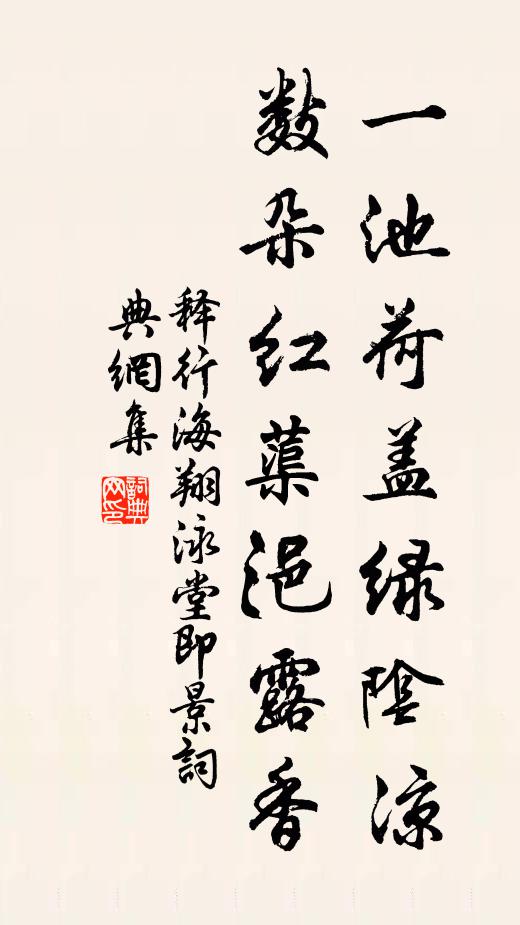 一池荷盖绿阴凉
数朵红蕖浥露香
释行海翔泳堂即景詞
典網集
詞典网印